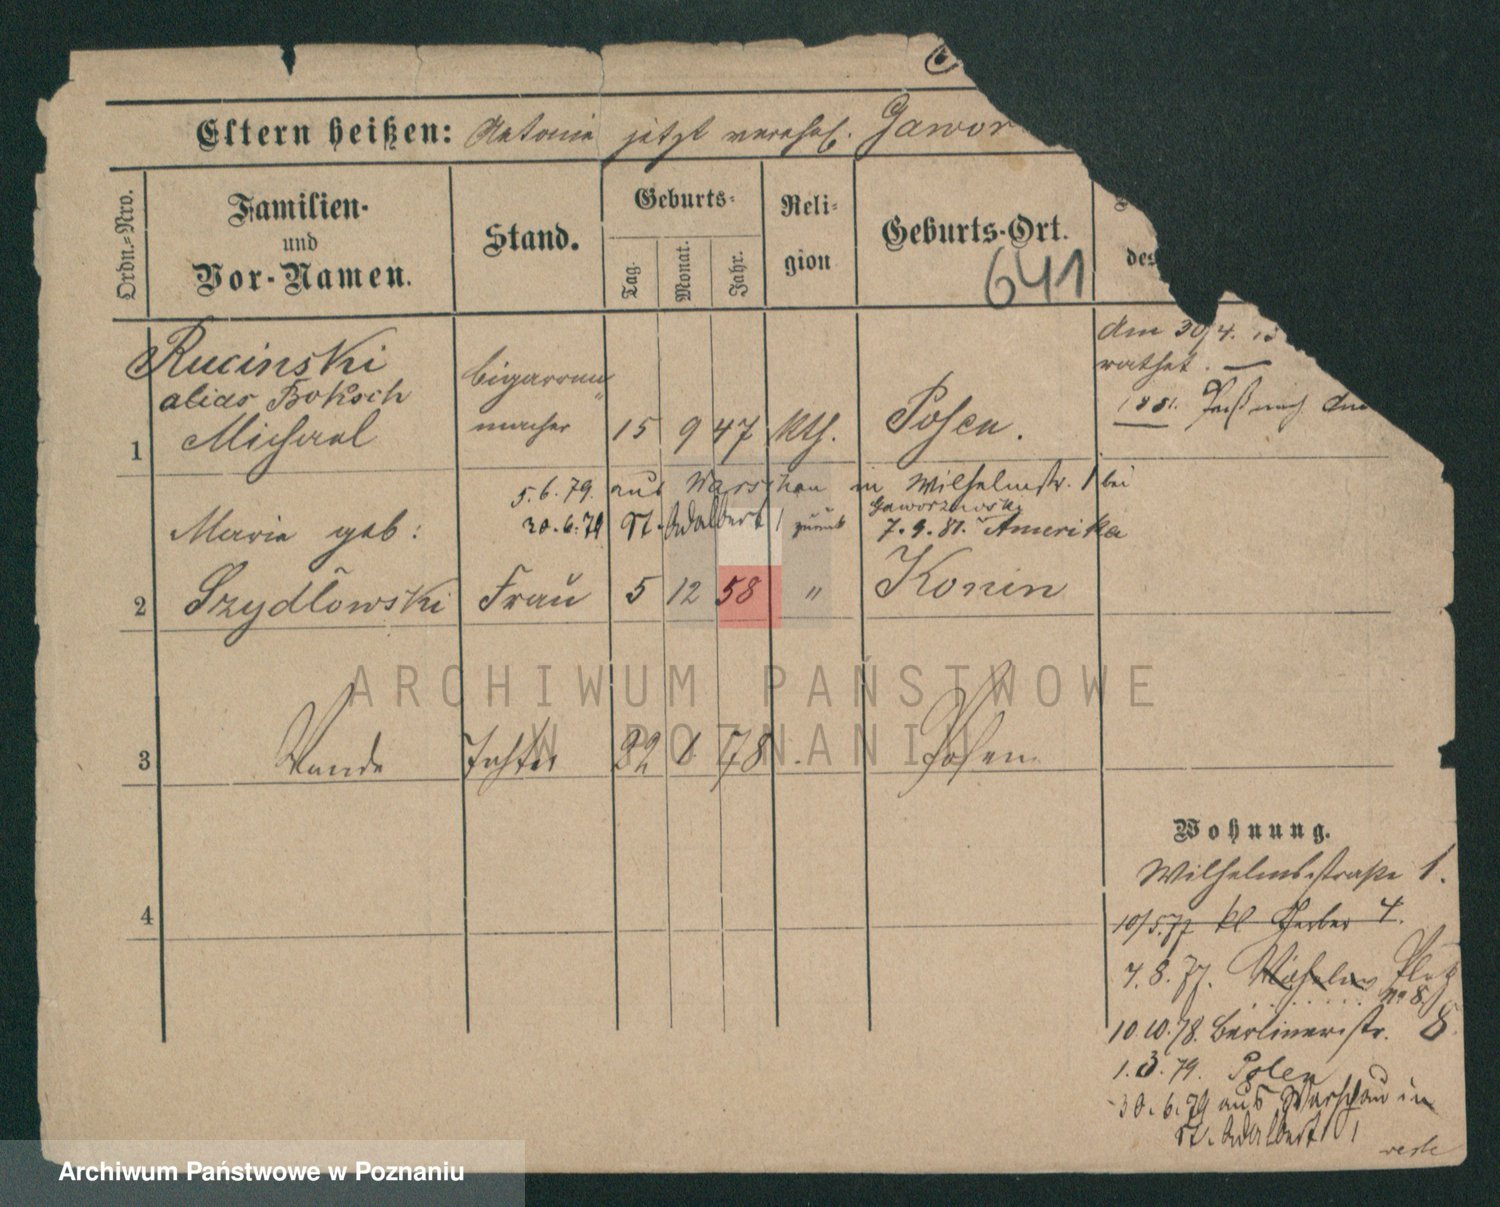 Eltern heißen: Antonie jetzt vereheł. Gawor
Ordn.=Nro.
Familien-
und
Vor-Namen.
Stand.
Geburts-
Tag.
Monat.
Jahr.
Reli-
gion
Geburts-Ort.
des
641
Rucinski
alias Boksch
1 Michael
macher
15 9 47 kth. Posen.
am 30/4.
rathet. —
1881. nach
5.6.79. aus Warschau in Wilhelmstr. 1 bei
Gaworzewski
30.6.79 St. Adalbert 1 zurück 7.9.81. Amerika
Marie geb:
2 Szydlowski Frau 5 12 58 " Konin
3 Wanda Tochter 22 1 78 Posen
4
Wohnung.
Wilhelmsstraße 1.
10/5.77 kl Gerber 4.
4.8.77. Wilhelms Platz
No 8.
10.10.78. Berlinerstr. 8.
1.3.79. Polen
30.6.79 aus Warschau in
St. Adalbert 1
ARCHIWUM PAŃSTWOWE
W POZNANIU
Archiwum Państwowe w Poznaniu